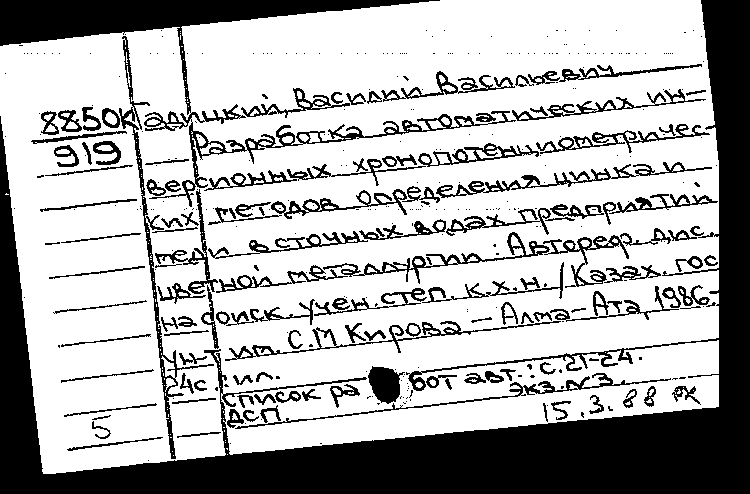 8850К Гадицкий, Василий Васильевич
919 Разработка автоматических ин-
версионных хронопотенциометричес-
ких методов определения цинка и
меди в сточных водах предприятий
цветной металлургии : Автореф. дис.
на соиск. учен. степ. к.х.н. / Казах. гос
ун-т им. С.М Кирова. - Алма-Ата, 1986.-
24с. : ил.
список работ авт.: с.21-24.
ДСП. Экз. N3.
5 15.3.88